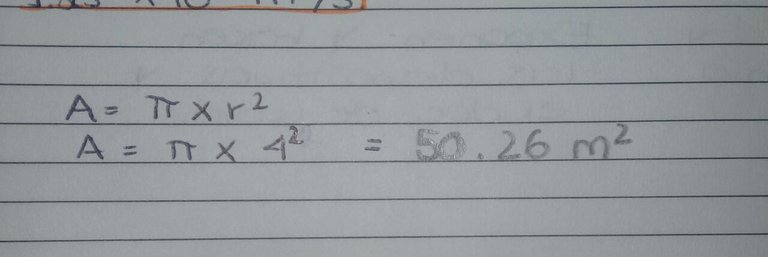 A = π × r²
A = π × 4² = 50.26 m²